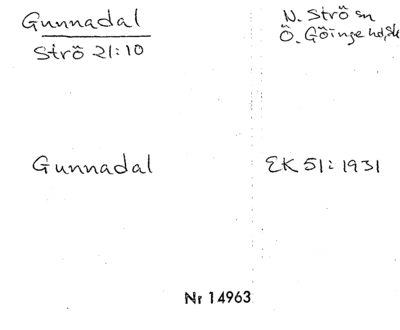 Gunnadal
Strö 21:10
N. Strö sn
Ö. Göinge hd, Sk
Gunnadal
EK 51: 1931
Nr 14963